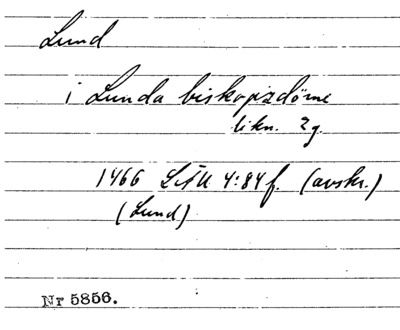 Lund
i Lunda biskopzdöme
likn. 2g.
1466 LSÅU 4:84f. (avskr.)
(Lund)
Nr 5856.